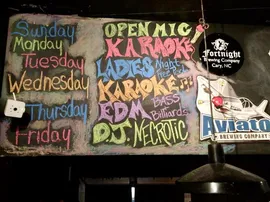 Sunday OPEN MIC
Monday KARAOKE
Tuesday LADIES Night
Wednesday KARAOKE
Thursday EDM BASS Billiards
Friday D.J. NECROTIC
Fortnight
Brewing Company
Cary, NC
Aviator
BREWING COMPANY